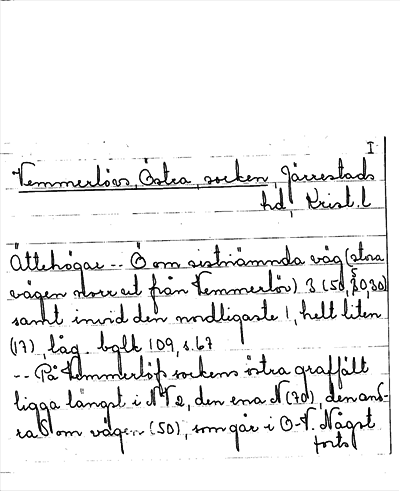 I
Vemmerlövs, Östra, socken, Järrestads
hd, Krist. l
Ättehögar -- Ö om sistnämnda väg (stora
vägen norr ut från Vemmerlöv) 3 (50, 80, 30)
samt invid den nordligaste 1, helt liten
(17), låg. bglk 109, s. 67
-- På Vemmerlöfs sockens östra graffält
ligga längst i NV 2, den ena N (70), den and-
ra S om vägen (50), som går i O-V. Något
forts